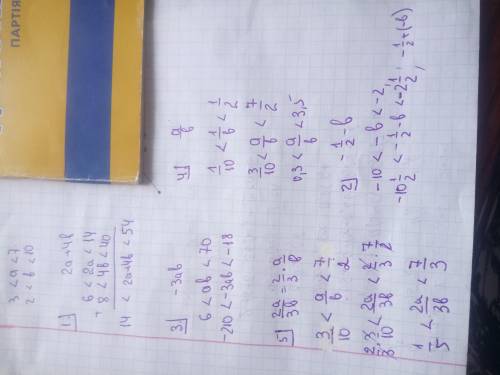 ПАРТІЯ
3 < a < 7
2 < b < 10
1) 2a+4b
6 < 2a < 14
+ 8 < 4b < 40
14 < 2a+4b < 54
3) -3ab
6 < ab < 70
-210 < -3ab < -18
5) 2a/3b = 2/3 · a/b
3/10 < a/b < 7/2
2/3 · 3/10 < 2a/3b < 2/3 · 7/2
1/5 < 2a/3b < 7/3
4) a/b
1/10 < 1/b < 1/2
3/10 < a/b < 7/2
0,3 < a/b < 3,5
2) -1/2 - b
-10 < -b < -2
-10 1/2 < -1/2 - b < -2 1/2 ; -1/2 + (-b)